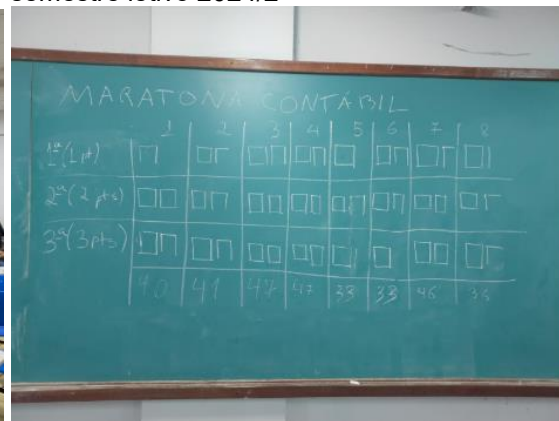 MARATONA CONTÁBIL
1 2 3 4 5 6 7 8
1ª (1 pt)
2ª (2 pts)
3ª (3 pts)
40 41 47 47 33 33 46 36